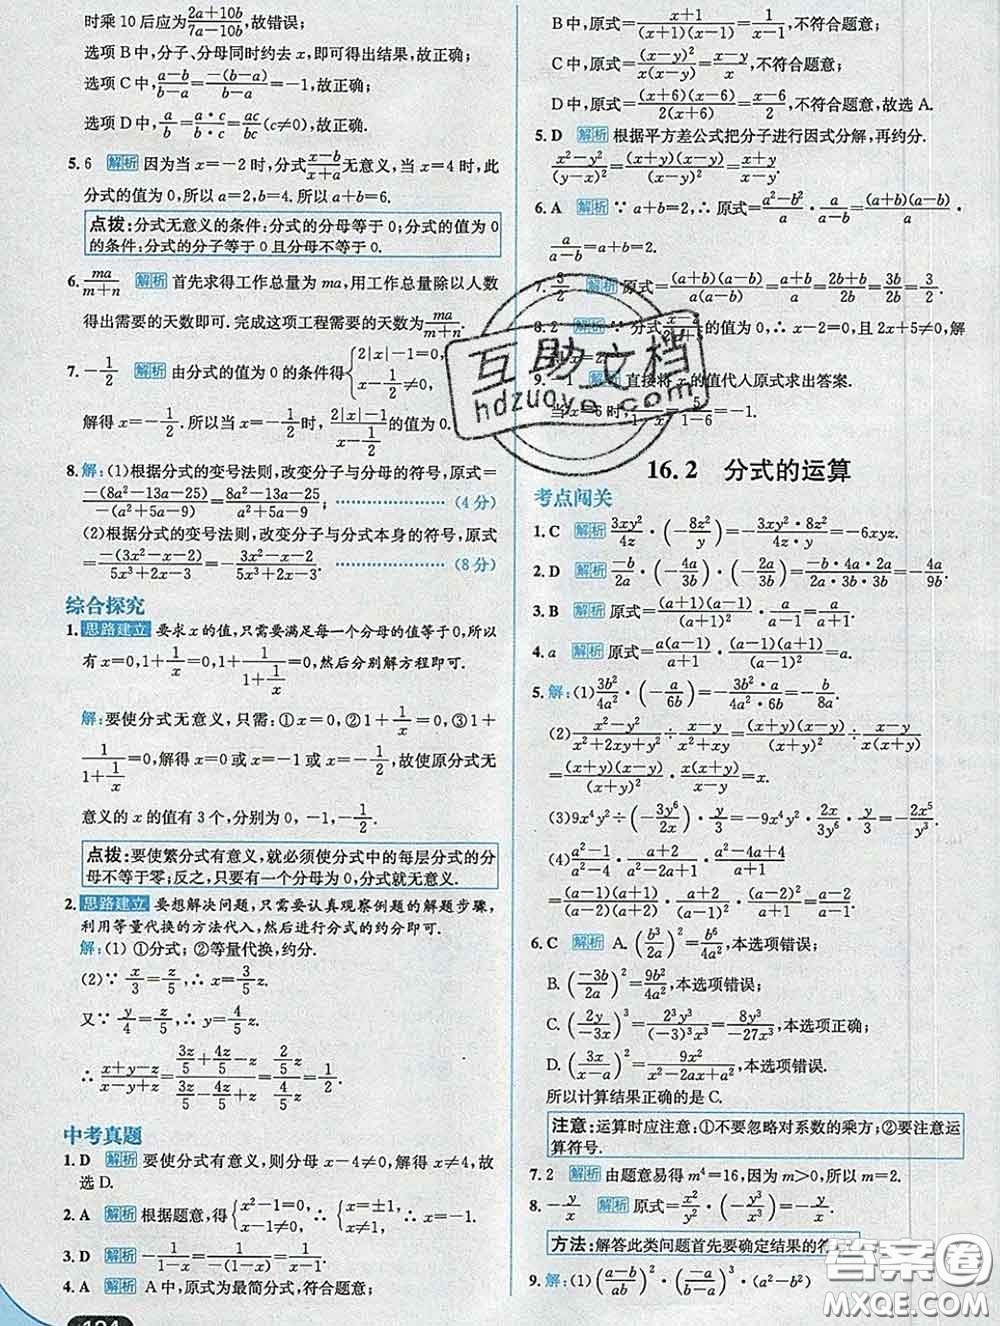 时乘 10 后应为 (2a+10b)/(7a-10b),故错误;
选项 B 中,分子、分母同时约去 x,即可得出结果,故正确;
选项 C 中,(a-b)/(b-a)=-(b-a)/(b-a)=-1,故正确;
选项 D 中,a/b=(a·c)/(b·c)=ac/bc(c≠0),故正确.
5. 6 解析 因为当 x=-2 时,分式(x-b)/(x+a)无意义,当 x=4 时,此
分式的值为 0,所以 a=2,b=4. 所以 a+b=6.
点拨:分式无意义的条件:分式的分母等于 0;分式的值为 0
的条件:分式的分子等于 0 且分母不等于 0.
6. ma/(m+n) 解析 首先求得工作总量为 ma,用工作总量除以人数
得出需要的天数即可. 完成这项工程需要的天数为 ma/(m+n).
7. -1/2 解析 由分式的值为 0 的条件得{2|x|-1=0, x-1/2≠0,
解得 x=-1/2. 所以当 x=-1/2时,(2|x|-1)/(x-1/2)的值为 0.
8. 解:(1)根据分式的变号法则,改变分子与分母的符号,原式=
-(8a²-13a-25)/-(a²+5a-9)=(8a²-13a-25)/(a²+5a-9). (4 分)
(2)根据分式的变号法则,改变分子与分式本身的符号,原式
=-(3x²-x-2)/(5x³+2x-3)=-(3x²-x-2)/(5x³+2x-3). (8 分)
综合探究
1. 思路建立 要求 x 的值,只需要满足每一个分母的值等于 0,所以
有 x=0,1+1/x=0,1+1/(1+1/x)=0,然后分别解方程即可.
解:要使分式无意义,只需:①x=0,②1+1/x=0,③1+
1/(1+1/x)=0,解得 x=0 或 x=-1 或 x=-1/2,故使原分式无
意义的 x 的值有 3 个,分别为 0,-1,-1/2.
点拨:要使繁分式有意义,就必须使分式中的每层分式的分
母不等于零;反之,只要有一个分母为 0,分式就无意义.
2. 思路建立 要想解决问题,只需要认真观察例题的解题步骤,
利用等量代换的方法代入,然后进行分式的约分即可.
解:(1) ①分式;②等量代换,约分.
(2)∵ x/3=z/5,∴ x=3/5 z.
又∵ y/4=z/5,∴ y=4/5 z.
∴ (x+y-z)/(x-y+z)=(3z/5+4z/5-z)/(3z/5-4z/5+z)=(2z/5)/(4z/5)=1/2.
中考真题
1. D 解析 要使分式有意义,则分母 x-4≠0,解得 x≠4,故
选 D.
2. A 解析 根据题意,得{x²-1=0, x-1≠0,∴{x=±1, x≠1,∴ x=-1.
3. D 解析 -1/(1-x)=1/-(1-x)=1/(x-1).
4. A 解析 A 中,原式为最简分式,符合题意;
B 中,原式=(x+1)/((x+1)(x-1))=1/(x-1),不符合题意;
C 中,原式=(x-y)²/(x(x-y))=(x-y)/x,不符合题意;
D 中,原式=(x+6)(x-6)/(2(x+6))=(x-6)/2,不符合题意,故选 A.
5. D 解析 根据平方差公式把分子进行因式分解,再约分.
(x²-y²)/(y-x)²=(x+y)(x-y)/(x-y)²=(x+y)/(x-y).
6. A 解析 ∵ a+b=2,∴ 原式=(a²-b²)/a·a/(a-b)=(a+b)(a-b)/a·
a/(a-b)=a+b=2.
7. 3/2 解析 原式=(a+b)(a-b)/(a(a-b))=(a+b)/a=(2b+b)/2b=3b/2b=3/2.
8. 2 解析 ∵ 分式的值为 0,∴ x-2=0,且 2x+5≠0,解
x=2
9. -1 解析 直接将 x 的值代入原式求出答案.
当 x=6 时,=5/(1-6)=-1.
16. 2 分式的运算
考点闯关
1. C 解析 3xy²/4z·(-8z²/y)=-(3xy²·8z²)/(4z·y)=-6xyz.
2. D 解析 -b/2a·(-4a/3b)·(-2a/3b)=(-b·4a·2a)/(2a·3b·3b)=-4a/9b.
3. B 解析 原式=(a+1)(a-1)/a²·a/(a-1)=(a+1)/a.
4. a 解析 原式=a(a-1)/(a+1)·(a-1)(a+1)/(a-1)²=a.
5. 解:(1)3b²/4a²·(-a/6b)=-(3b²·a)/(4a²·6b)=-b/8a.
(2)(x²-y²)/(x²+2xy+y²)÷(x-y)/(x²+xy)=(x+y)(x-y)/(x+y)²÷(x-y)/(x(x+y))
=(x+y)(x-y)/(x+y)²·x(x+y)/(x-y)=x.
(3)9x⁴y²÷(-3y⁶/2x)·y/3=-9x⁴y²·2x/3y⁶·y/3=-2x⁵/y³.
(4)(a²-1)/(a²-4)÷(a²+a)/(a-2)·(a²-4a+4)/(a-1)
=(a+1)(a-1)/((a+2)(a-2))·(a-2)/(a(a+1))·(a-2)²/(a-1)=(a-2)²/(a(a+2)).
6. C 解析 A. (b³/2a)²=b⁶/4a²,本选项错误;
B. (-3b/2a)²=9b²/4a²,本选项错误;
C. (2y/-3x)³=2³y³/((-3)³x³)=8y³/-27x³,本选项正确;
D. (3x/(x-a))²=9x²/(x²-2ax+a²),本选项错误.
所以计算结果正确的是 C.
注意:运算时应注意:①不要忽略对系数的乘方;②要注意运
算符号.
7. 2 解析 由题意易得 m⁴=16,因为 m>0,所以 m=2.
8. -y/x 解析 原式=x²/y²·(-y³/x³)=-y/x.
方法:解答此类问题首先要确定结果的符
9. 解:(1)((a-b)/ab)²·(-a/(b-a))³÷(a²-b²)
互助文档
hdzuoye.com
答案圈
MXQE.COM